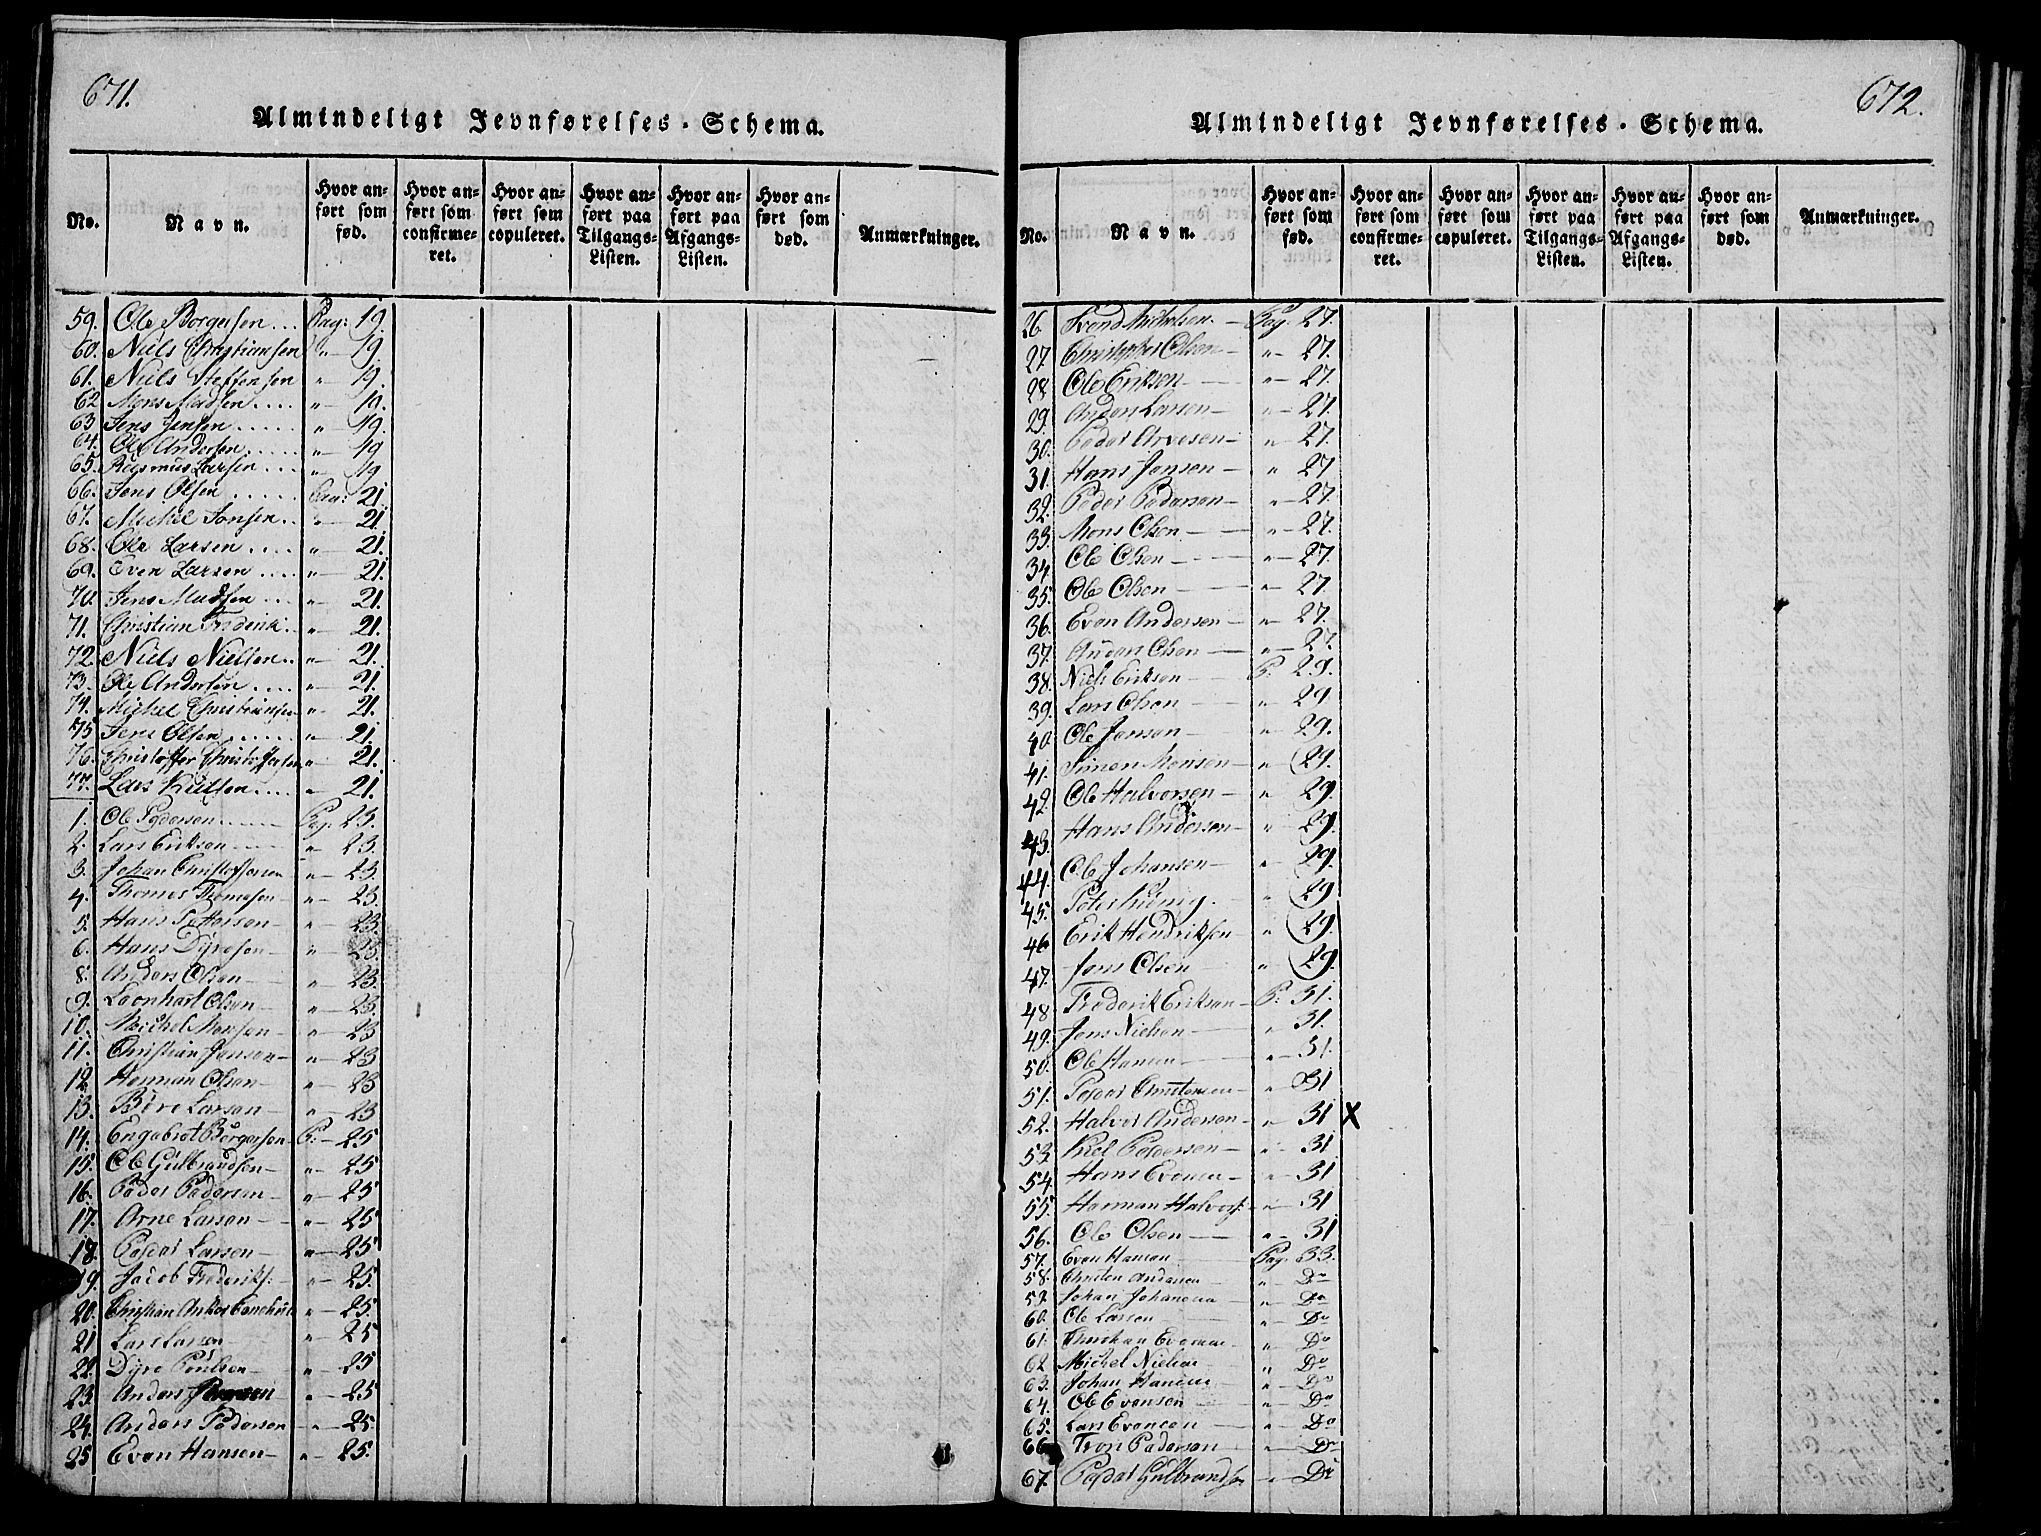 671.
Almindeligt Jevnførelses-Schema.
No.
Navn.
Hvor anført som fød.
Hvor anført som confirmeret.
Hvor anført som copuleret.
Hvor anført paa Tilgangs-Listen.
Hvor anført paa Afgangs-Listen.
Hvor anført som død.
Anmærkninger.
59. Ole Borgersen ... Pag: 19.
60. Niels Christiansen " 19.
61. Niels Steffensen " 19.
62 Mons Madsen .... " 19.
63 Jens Jensen ..... " 19.
64. Ole Andersen ..... " 19
65. Rasmus Larsen ... " 19
66. Jens Olsen ..... Pag: 21.
67. Mickel Jonsen .. " 21.
68. Ole Larsen .... " 21.
69. Even Larsen .... " 21.
70. Jens Madsen ... " 21.
71. Christian Frederik .. " 21.
72. Niels Nielsen .. " 21.
73. Ole Andersen .... " 21.
74. Michel Christiansen " 21.
75 Jens Olsen ...... " 21.
76. Christoffer Christoffersen " 21.
77. Lars Knutsen .... " 21.
1. Ole Pedersen ..... Pag: 23.
2. Lars Eriksen " 23.
3. Johan Christoffersen " 23.
4. Thomes Thomesen " 23.
5. Hans Pettersen " 23.
6. Hans Dyresen " 23.
8. Anders Olsen " 23.
9. Leonhart Olsen " 23.
10. Michel Monsen " 23
11. Christian Jensen " 23
12. Herman Olsen " 23
13. Børe Larsen " 23
14. Engebret Borgersen P: 25
15. Ole Gulbrandsen " 25
16. Peder Pedersen " 25
17. Arne Larsen " 25
18. Peder Larsen " 25
19. Jacob Frederiks: " 25.
20. Christian Anker " 25.
21 Lars Larsen " 25
22. Dyre Poulsen " 25
23. Anders " 25
24. Anders Pedersen " 25
25 Even Hansen " 25.
672.
Almindeligt Jevnførelses-Schema.
No.
Navn.
Hvor anført som fød.
Hvor anført som confirmeret.
Hvor anført som copuleret.
Hvor anført paa Tilgangs-Listen.
Hvor anført paa Afgangs-Listen.
Hvor anført som død.
Anmærkninger.
26 Svend Michelsen Pag: 27.
27 Christopher Olsen " 27.
28 Ole Eriksen " 27.
29. Anders Larsen " 27.
30. Peder Arvesen " 27.
31. Hans Jensen " 27
32. Peder Pedersen " 27.
33. Mons Olsen " 27.
34. Ole Olsen " 27.
35. Ole Olsen " 27.
36. Even Andersen " 27.
37. Auden Olsen " 27.
38. Niels Eriksen P: 29.
39. Lars Olsen " 29
40. Ole Jensen " 29.
41. Simen Monsen " 29.
42. Ole Halvorsen " 29.
43. Hans Andersen " 29.
44. Ole Johansen " 29.
45. Peter " 29
46 Erik Hendriksen " 29.
47. Jens Olsen " 29.
48 Frederik Eriksen P: 31.
49. Jens Nielsen " 31.
50. Ole Hansen " 31.
51. Peder Christensen " 31
52. Halvor Andersen " 31 X
53. Kiel Pedersen " 31
54. Hans Evensen " 31
55. Herman Halvors: " 31
56. Ole Olsen " 31
57. Even Hansen Pag: 33.
58. Christen Andersen " Do
59. Johan Johansen " Do
60. Ole Larsen " Do
61. Christian Evensen " Do
62 Michel Nielsen " Do
63. Johan Hansen " Do
64. Ole Evensen " Do
65. Lars Evensen " Do
66 Tron Pedersen " Do
67. Peder Gulbrandsen " Do